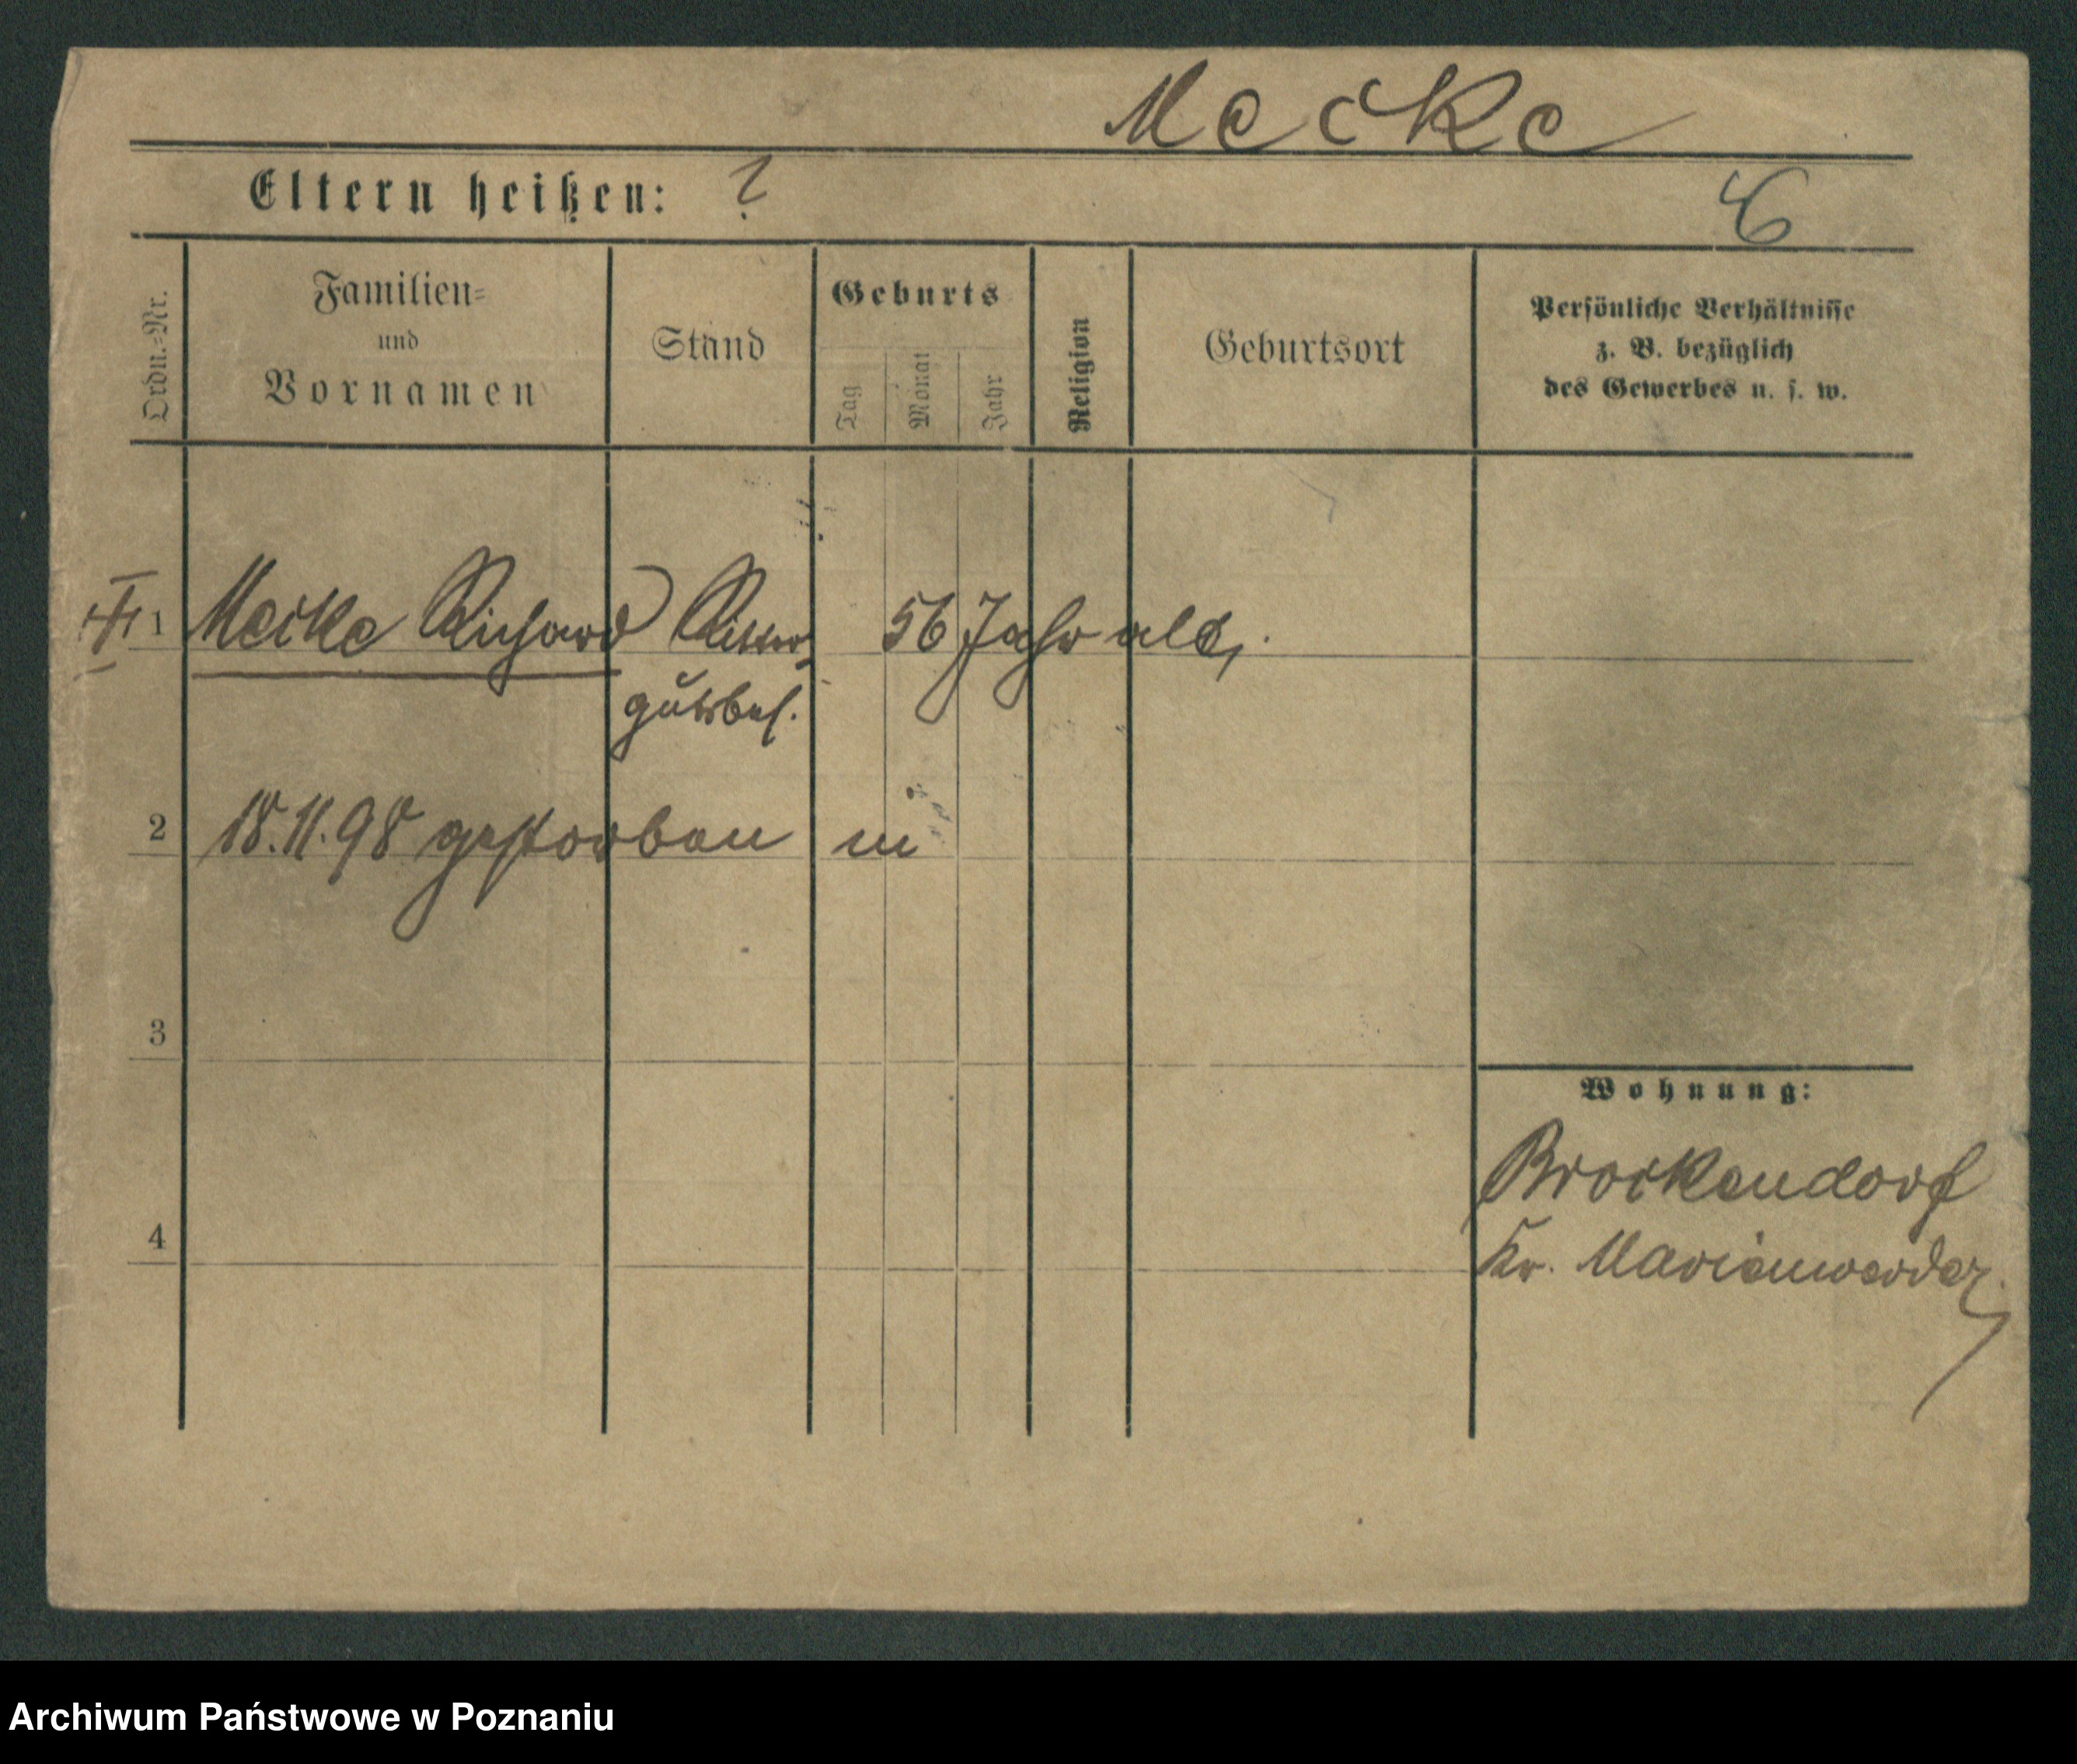 Mecke
Eltern heißen: ?
Ordn.-Nr.
Familien-
und
Vornamen
Stand
Geburts
Tag
Monat
Jahr
Religion
Geburtsort
Persönliche Verhältnisse
z. B. bezüglich
des Gewerbes u. s. w.
1 Mecke Richard Ritter- 56 Jahr alt,
gutsbes.
2 18.11.98 gestorben in
3
Wohnung:
Brockendorf
4
Kr. Marienwerder
Archiwum Państwowe w Poznaniu